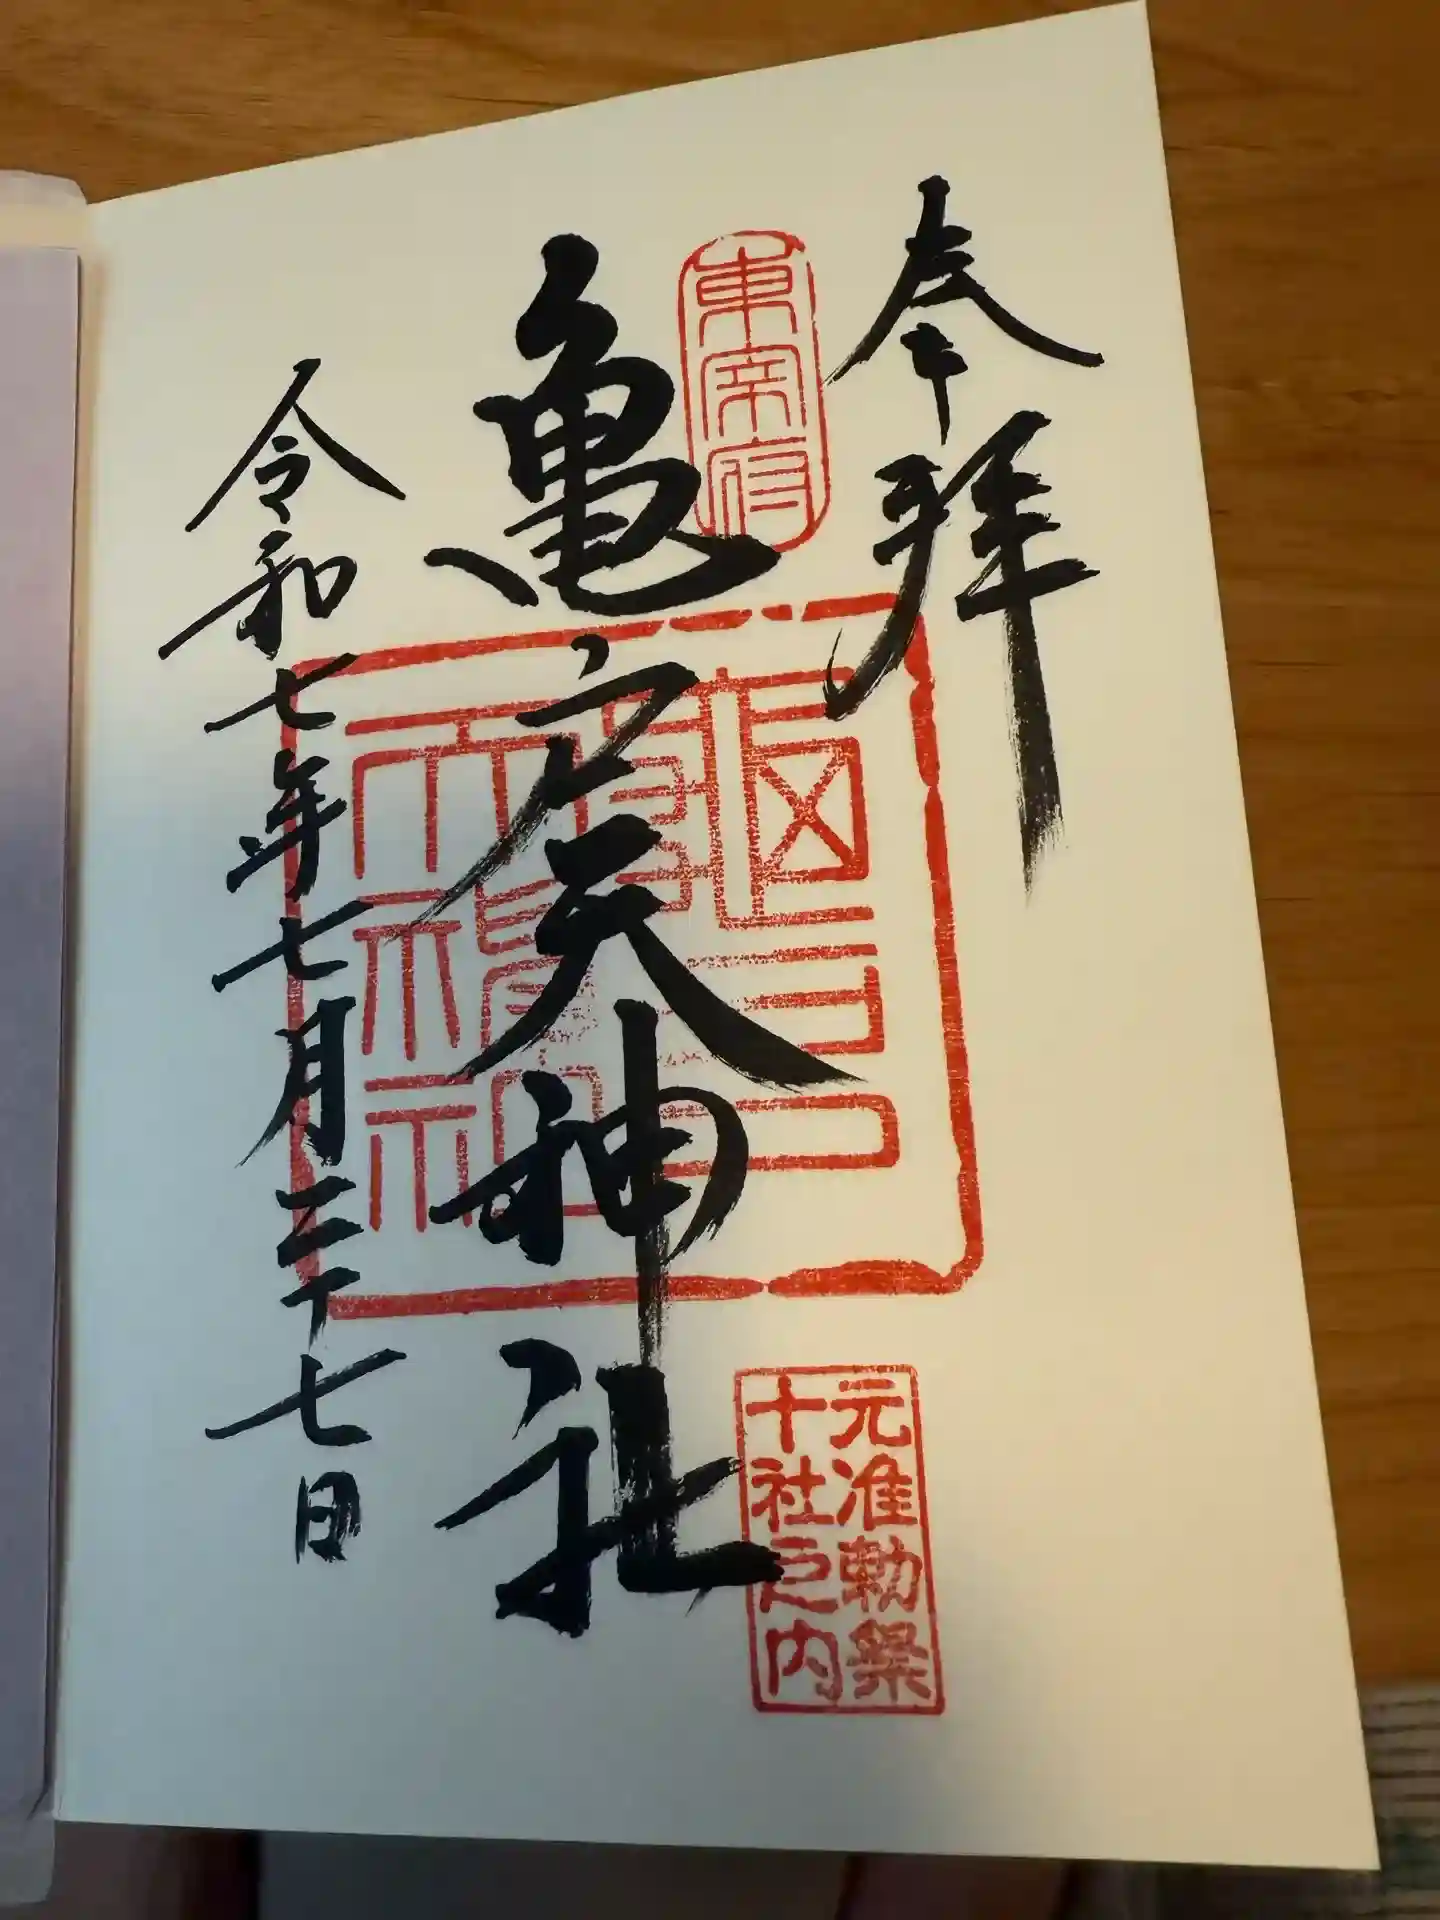 奉拝
東宰府
亀戸天神社
令和七年七月二十七日
元准勅祭
十社之内